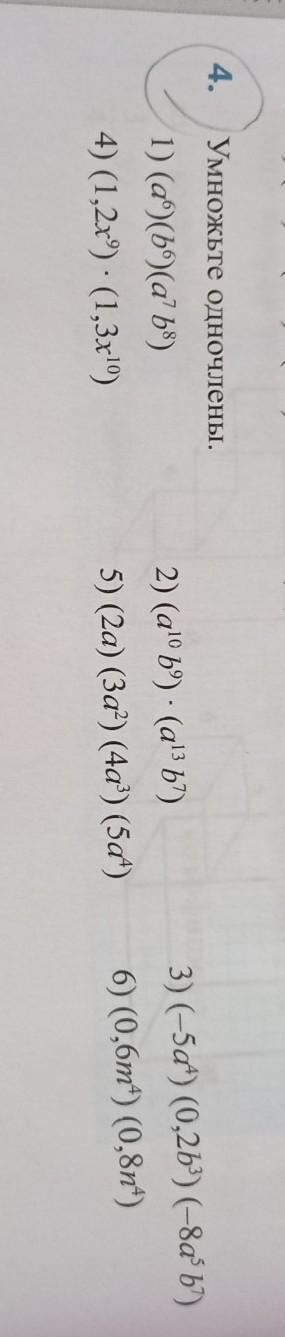 4. Умножьте одночлены.
1) (a⁶)(b⁶)(a⁷ b⁸) 2) (a¹⁰ b⁹) · (a¹³ b⁷) 3) (−5a⁴) (0,2b³) (−8a⁵ b⁷)
4) (1,2x⁹) · (1,3x¹⁰) 5) (2a) (3a²) (4a³) (5a⁴) 6) (0,6m⁴) (0,8n⁴)